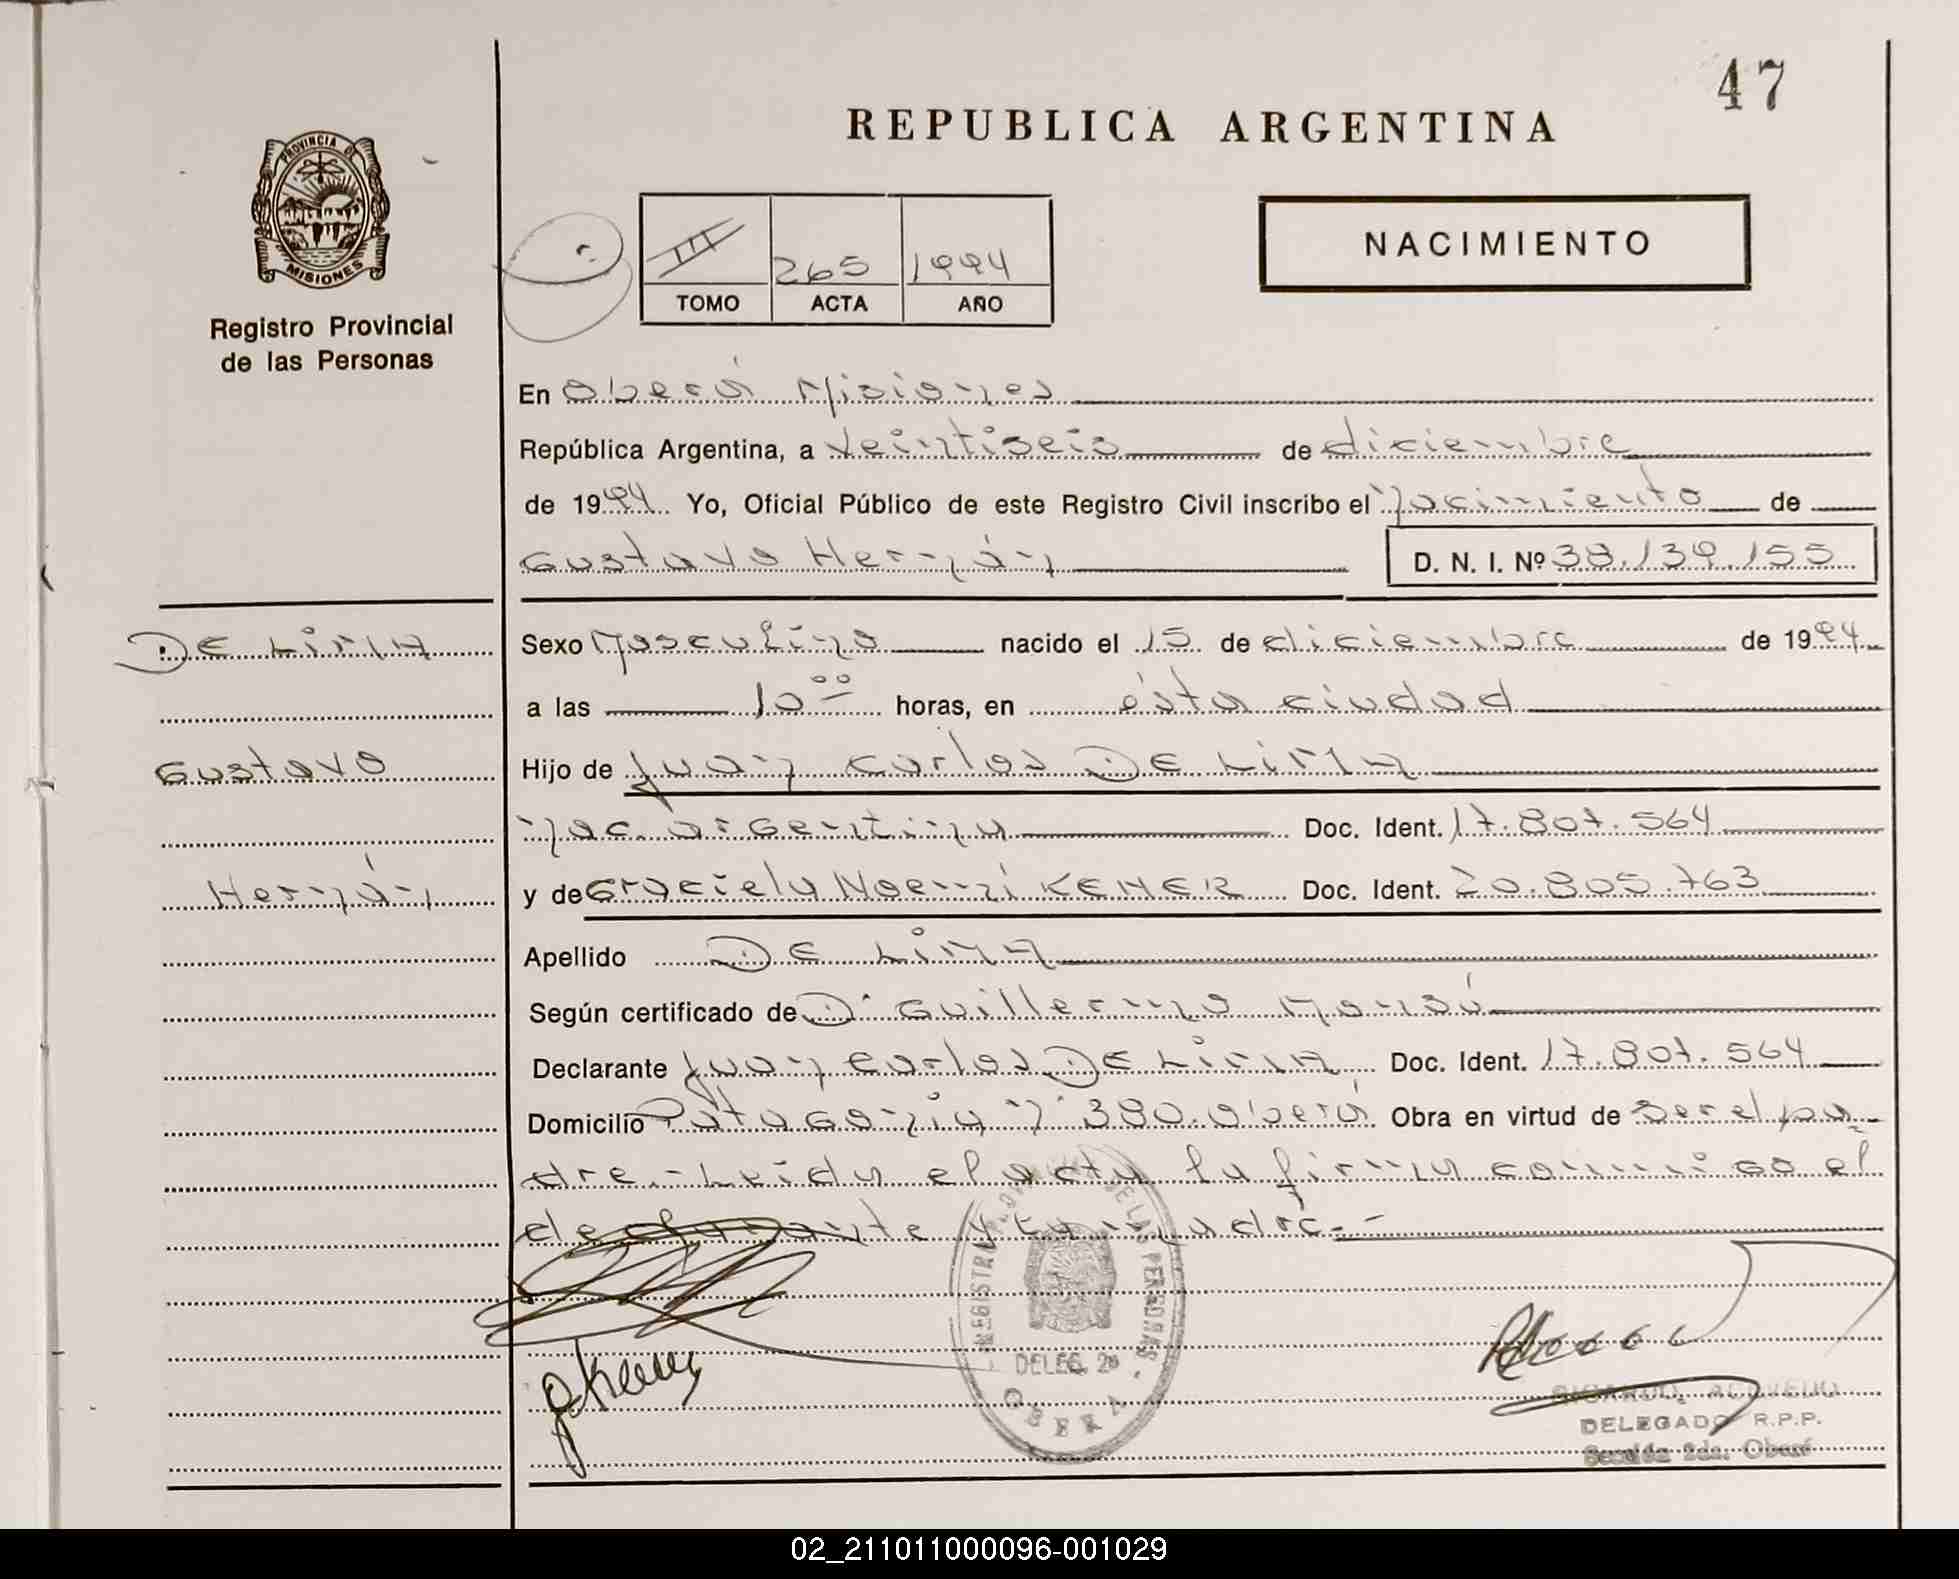 47
REPUBLICA ARGENTINA
PROVINCIA DE
MISIONES
Registro Provincial
de las Personas
III 265 1994
TOMO ACTA AÑO
NACIMIENTO
En Oberá Misiones
República Argentina, a veintiseis de diciembre
de 1994 Yo, Oficial Público de este Registro Civil inscribo el nacimiento de
Gustavo Hernán D. N. I. Nº 38.139.155
DE LIMA
Gustavo
Hernán
Sexo Masculino nacido el 15 de diciembre de 1994
a las 10 00 horas, en ésta ciudad
Hijo de Juan Carlos DE LIMA
nac. argentina Doc. Ident. 17.807.564
y de Graciela Noemí KEMER Doc. Ident. 20.805.763
Apellido DE LIMA
Según certificado de Dr Guillermo
Declarante Juan Carlos DE LIMA Doc. Ident. 17.807.564
Domicilio Patagonia nº 380. Oberá Obra en virtud de ser el pa-
dre.- Leida el acta la firman conmigo el
declarante y la madre.-
REGISTRO PROVINCIAL DE LAS PERSONAS
DELEG. 2ª
OBERA
RICARDO ACEVEDO
DELEGADO R.P.P.
Sección 2da. Oberá
02_211011000096-001029